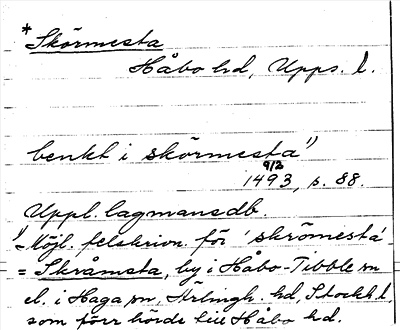 * Skörmesta
Håbo hd, Upps. l.
benkt i skörmesta¹⁾
9/2
1493, s. 88.
Uppl. lagmansdb.
¹⁾ Möjl. felskrivn. för ʼskrömestaʼ
= Skråmsta, by i Håbo-Tibble sn
el. i Haga sn, Ärlingh. hd, Stockh. l,
som förr hörde till Håbo hd.